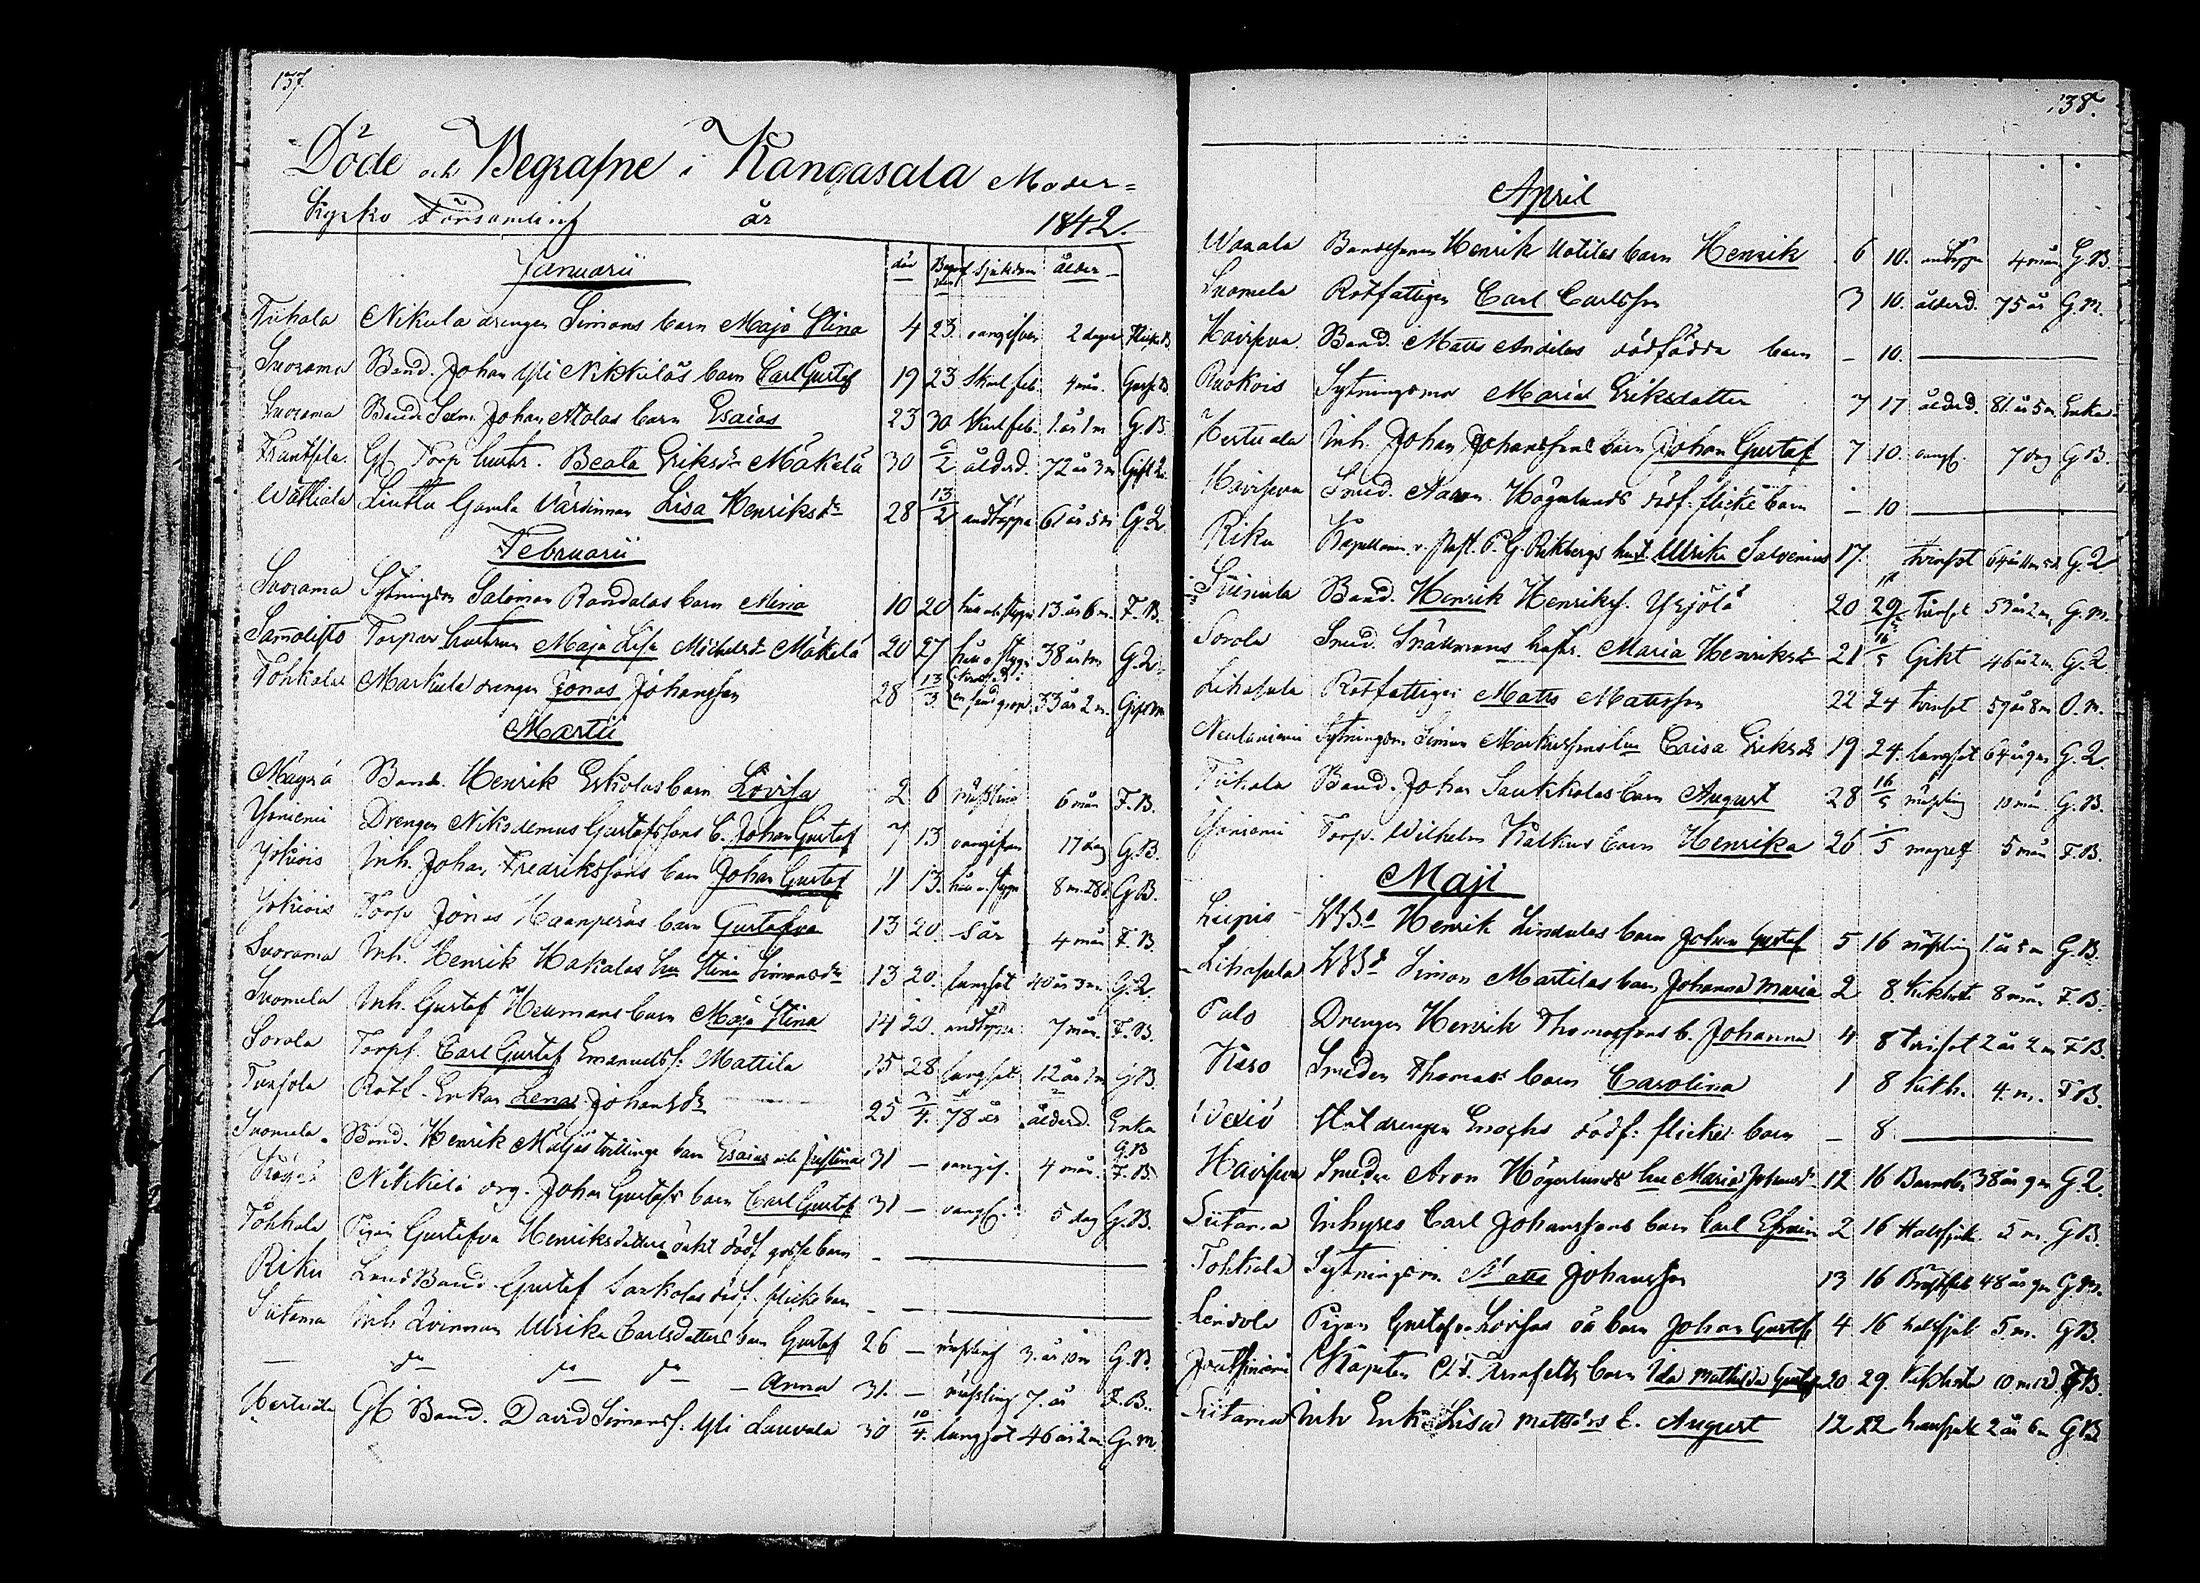 137.
Döde och Begrafne i Kangasala Moder=
Kyrko Församling år 1842.
Januarii
död Begrafven Sjukdom ålder
Tiihala Nikula drengen Simons barn Maja Stina 4 23 oangifven 2 dagar
Suorama Bond. Johan Yli Nikkiläs barn Carl Gustaf 19 23 Skarl feb. 4 mån.
Suorama Johan Atolas barn Esaias 23 30 Skarl feb. 1 år 1 m G.B.
Frantsila Gl. Torp hustr. Beata Eriksdr Mäkelä 30 6/2 ålderd. 72 år 3 m
Wätiala Liutta Gamla Värdinnan Lisa Henriksdr 28 13/2 andtäppa 61 år 5 m G.Q.
Februarii
Suorama Sytningsm Salomon Randalas barn Mina 10 20 13 år 6 m. F.B.
Torpar hustrun Maja Lisa Michelsdr Mäkelä 20 27 håll o. stygn 38 år 1 m G.Q.
Tohkala Markula drengen Jonas Johansson 28 13/3 33 år 2 m.
Martii
Mäyrä Bond. Henrik Erkolas barn Lovisa 2 6 mässling 6 mån F.B.
Drengen Nikodemus Gustafssons b. Johan Gustaf 7 13 oangifven 17 dag G.B.
Inh. Johan Fredrikssons barn Johan Gustaf 11 13. håll o. stygn 8 m. 28 d G.B.
Torp Jonas Haanperäs barn Gustafva 13 20. 4 mån F.B.
Suorama Inh. Henrik Hakalas hu Stina Simonsdr 13 20. lungsot 40 år 3 m. G.Q.
Suomela Inh. Gustaf Heumans barn Maja Stina 14 20. andtäppa 7 mån. F.B.
Sorola Torps. Carl Gustaf Emanuelss. Mattila 15 28 lungsot 12 år 1 m G.B.
Tursola Rotf. Enkan Lena Johansdr 25 3/4. 78 år ålderd. Enka
Suomela Bond. Henrik Maljas tvillinge barn Esaias och Justina 31 — oangif. 4 mån G.B F.B.
Nikkilä drg. Johan Gustafss barn Carl Gustaf 31 — oangf. 5 dag G.B.
Tohkala Pigan Gustafva Henriksdotters oäkt dödf. gosse barn - ———
Riku Lands Bond Gustaf Sarkolas dödf. flicke barn - - ———
Siitama Inh Qvinnan Ulrika Carlsdotters barn Gustaf 26 — mässling 3. år 10 m G.B.
— do do do — Anna 31. — mässling 7. år F.B.
Hertuala Gl Bond. David Simonss. Yli Lauvala 30 10/4. lungsot 46 år 2 m G.M
138.
April
Bondesonen Henrik Uotilas barn Henrik 6 10. andtäppa 4 mån G.B.
Suomela Rotfattigen Carl Carlsson 3 10. ålderd. 75 år G.M.
Haviseva Bond. Matts Andilas dödfödda barn — 10. ———
Ruokois Sytningsmor Maria Eriksdotter 7 17 ålderd. 81. år 5 m. Enka
Hertuala Inh. Johan Johanssons barn Johan Gustaf 7 10. oangf. 7 dag G B.
Haviseva Smed. Aaron Högerlunds dödf. flicke barn — 10 ———
Riku Kapellanen v. past. P. G. hust. Ulrika Salvenius 17. tvinsot 64 år G.Q.
Suinula Bond. Henrik Henrikss. Yrjölä 20 29 tvinsot 53 år 2 m. G.M.
Sorola Smed. Snäckmans hustr. Maria Henriksdr 21 16/5 Gikt 46 år 2 m. G.Q
Lihasula Rotfattigen Matts Mattsson 22 24 tvinsot 57 år 8 m O.M.
Sytningsm Simon Markussons hu Caisa Eriksdr 19 24. lungsot 64 år 9 m G.Q.
Tiihala Bond. Johan Saukkolas barn August 28 16/5 mässling 10 mån. G.B.
Torp. Wilhelm Kalkus barn Henrika 26 1/5 magref 5 mån F.B.
Maji
Liupio Henrik Lindulas barn Johan Gustaf 5 16 mässling 1. år 5 m G.B.
Lihasula Simon Martilas barn Johanna Maria 2 8. kikhosta 8 mån F.B.
Palo Drengen Henrik Thomassons b. Johanna 4 8 tvinsot 2 år 2 m F.B.
Smeden Thomas's barn Carolina 1 8 kikh. 4. m. F.B.
Wexiö Stal drengen Enochs dödf: flicke barn — 8. ———
Havisevu Smeden Aron Högerlunds hu Maria Johansdr 12 16 Barnsb. 38 år 9 m G.Q.
Siitama Inhyses Carl Johanssons barn Carl Efraim 2 16 Halssjuk. 5 m. G.B.
Tohkala Sytningsm. Matts Johansson 13 16 Bröstfeb 48 år 9 m G.M.
Lendola Pigan Gustafva Lovisas oä barn Johan Gustaf 4 16 halssjuk 5 m. G B.
Kapten barn Ida Mathilda Gustafva 20 29. kikhosta 10 m F.B.
Siitama Inh Enk Lisa Mattsdrs b. August 12 22 halssjuk 2 år 6 m G.B.